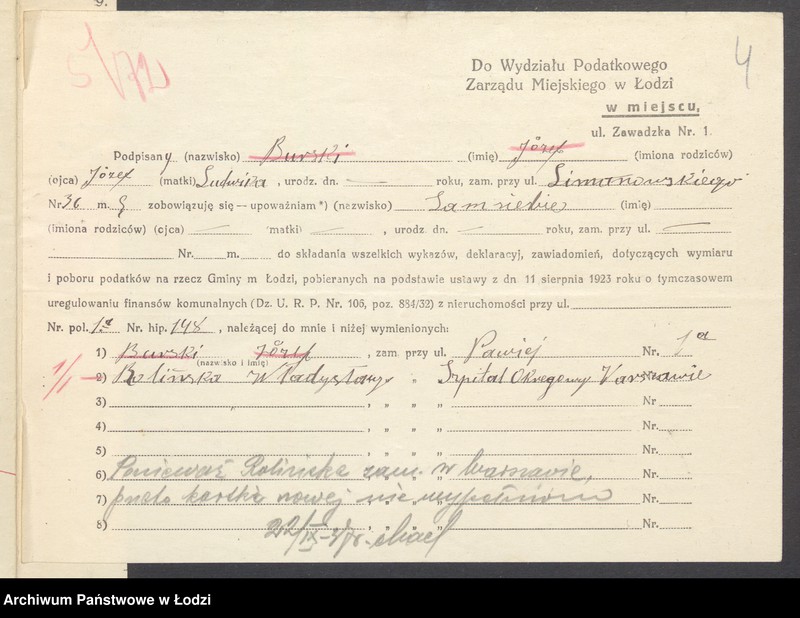 4
Do Wydziału Podatkowego
Zarządu Miejskiego w Łodzi
w miejscu,
ul. Zawadzka Nr. 1.
Podpisany (nazwisko) Burski (imię) Józef (imiona rodziców)
(ojca) Józef (matki) Ludwika, urodz. dn. — roku, zam. przy ul. Limanowskiego
Nr. 36 m. zobowiązuję się — upoważniam *) (nazwisko) Sam siebie (imię)
(imiona rodziców) (ojca) — matki) — , urodz. dn. — roku, zam. przy ul. —
Nr. m. do składania wszelkich wykazów, deklaracyj, zawiadomień, dotyczących wymiaru
i poboru podatków na rzecz Gminy m Łodzi, pobieranych na podstawie ustawy z dn 11 sierpnia 1923 roku o tymczasowem
uregulowaniu finansów komunalnych (Dz. U. R. P. Nr. 106, poz. 884/32) z nieruchomości przy ul.
Nr. pol. 1a Nr. hip. 148, należącej do mnie i niżej wymienionych:
1) Burski Józef, zam. przy ul. Pawiej Nr. 1a
(nazwisko i imię)
1/1 2) Rolińska Władysława „ Szpital Okręgowy Warszawie
3) , „ „ Nr
4) , „ „ Nr.
5) , „ „ Nr.
6) Ponieważ Rolińska zam. w Warszawie, Nr.
7) przeto kartki nowej nie wypełniono Nr.
8) 22/IX Nr.
Archiwum Państwowe w Łodzi